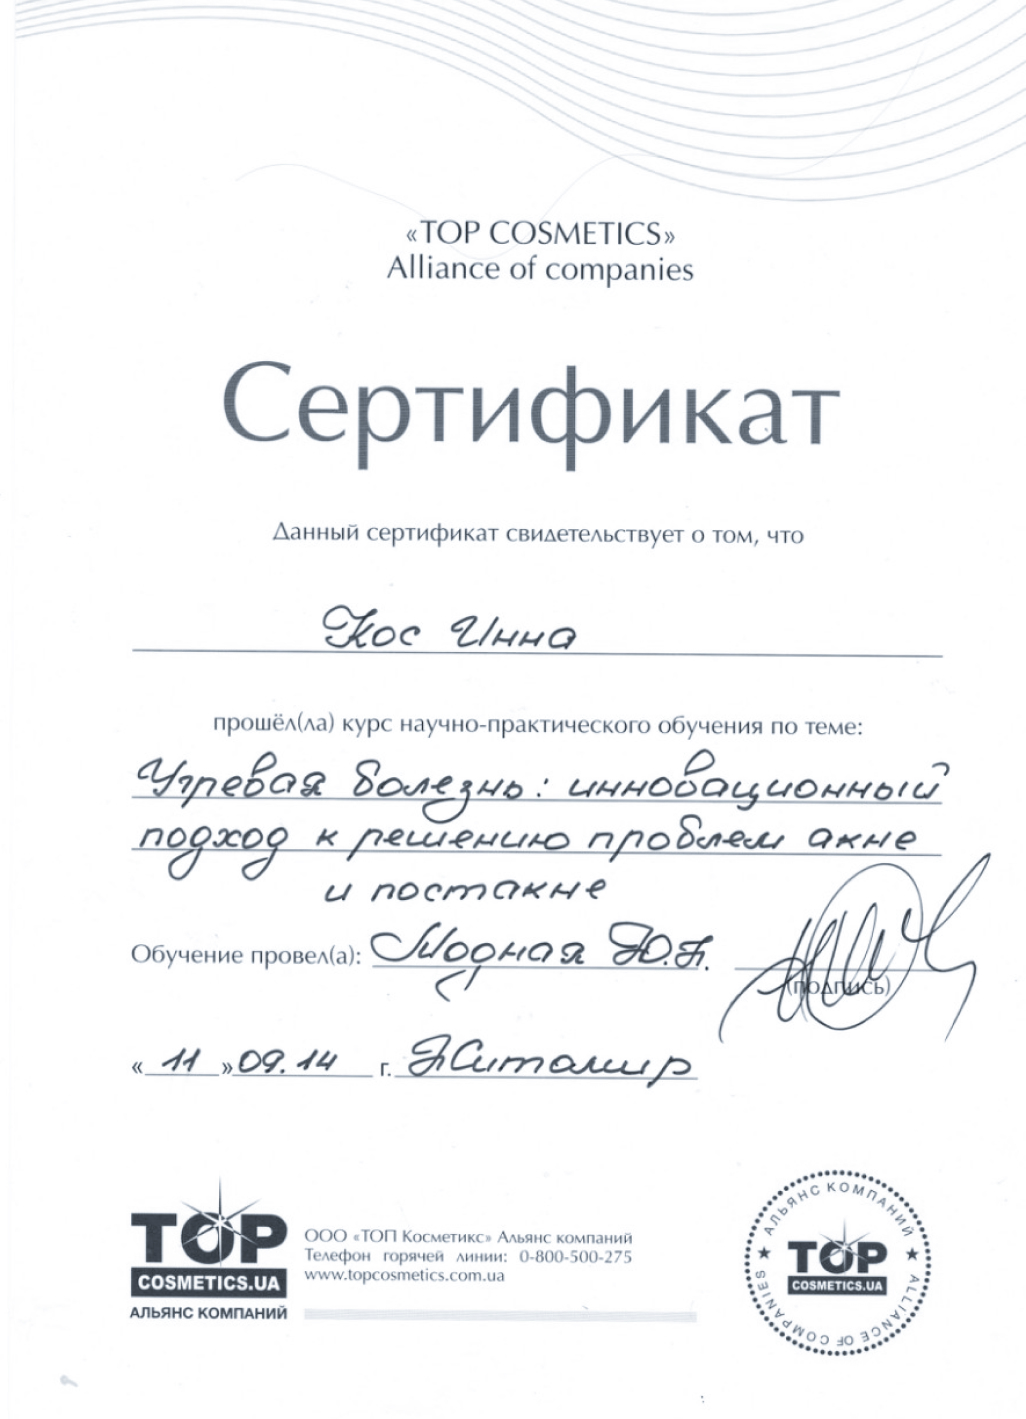 «TOP COSMETICS»
Alliance of companies
Сертификат
Данный сертификат свидетельствует о том, что
Кос Инна
прошёл(ла) курс научно-практического обучения по теме:
Угревая болезнь: инновационный
подход к решению проблем акне
и постакне
Обучение провел(а): Модная Ю.П.
(подпись)
« 11 » 09.14 г. Житомир
TOP
COSMETICS.UA
АЛЬЯНС КОМПАНИЙ
ООО «ТОП Косметикс» Альянс компаний
Телефон горячей линии: 0-800-500-275
www.topcosmetics.com.ua
АЛЬЯНС КОМПАНИЙ
TOP
COSMETICS.UA
ALLIANCE OF COMPANIES